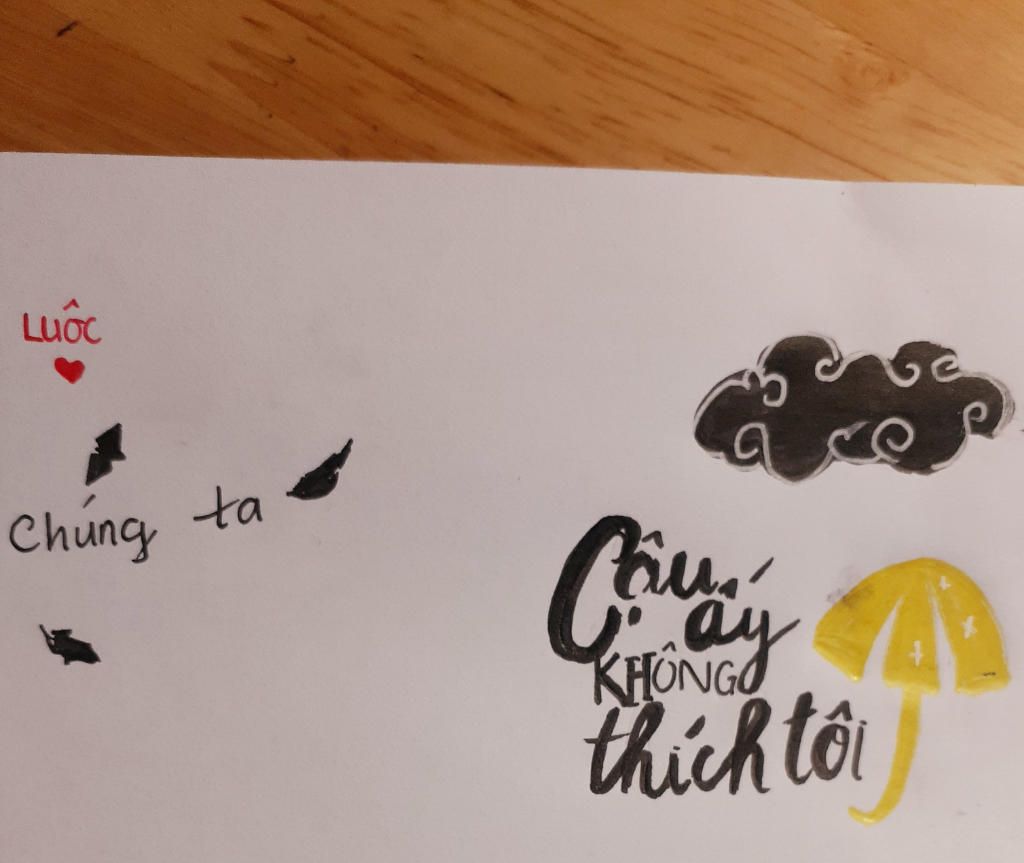 Luôc
Chúng ta
Cậu ấy
KHÔNG
thích tôi